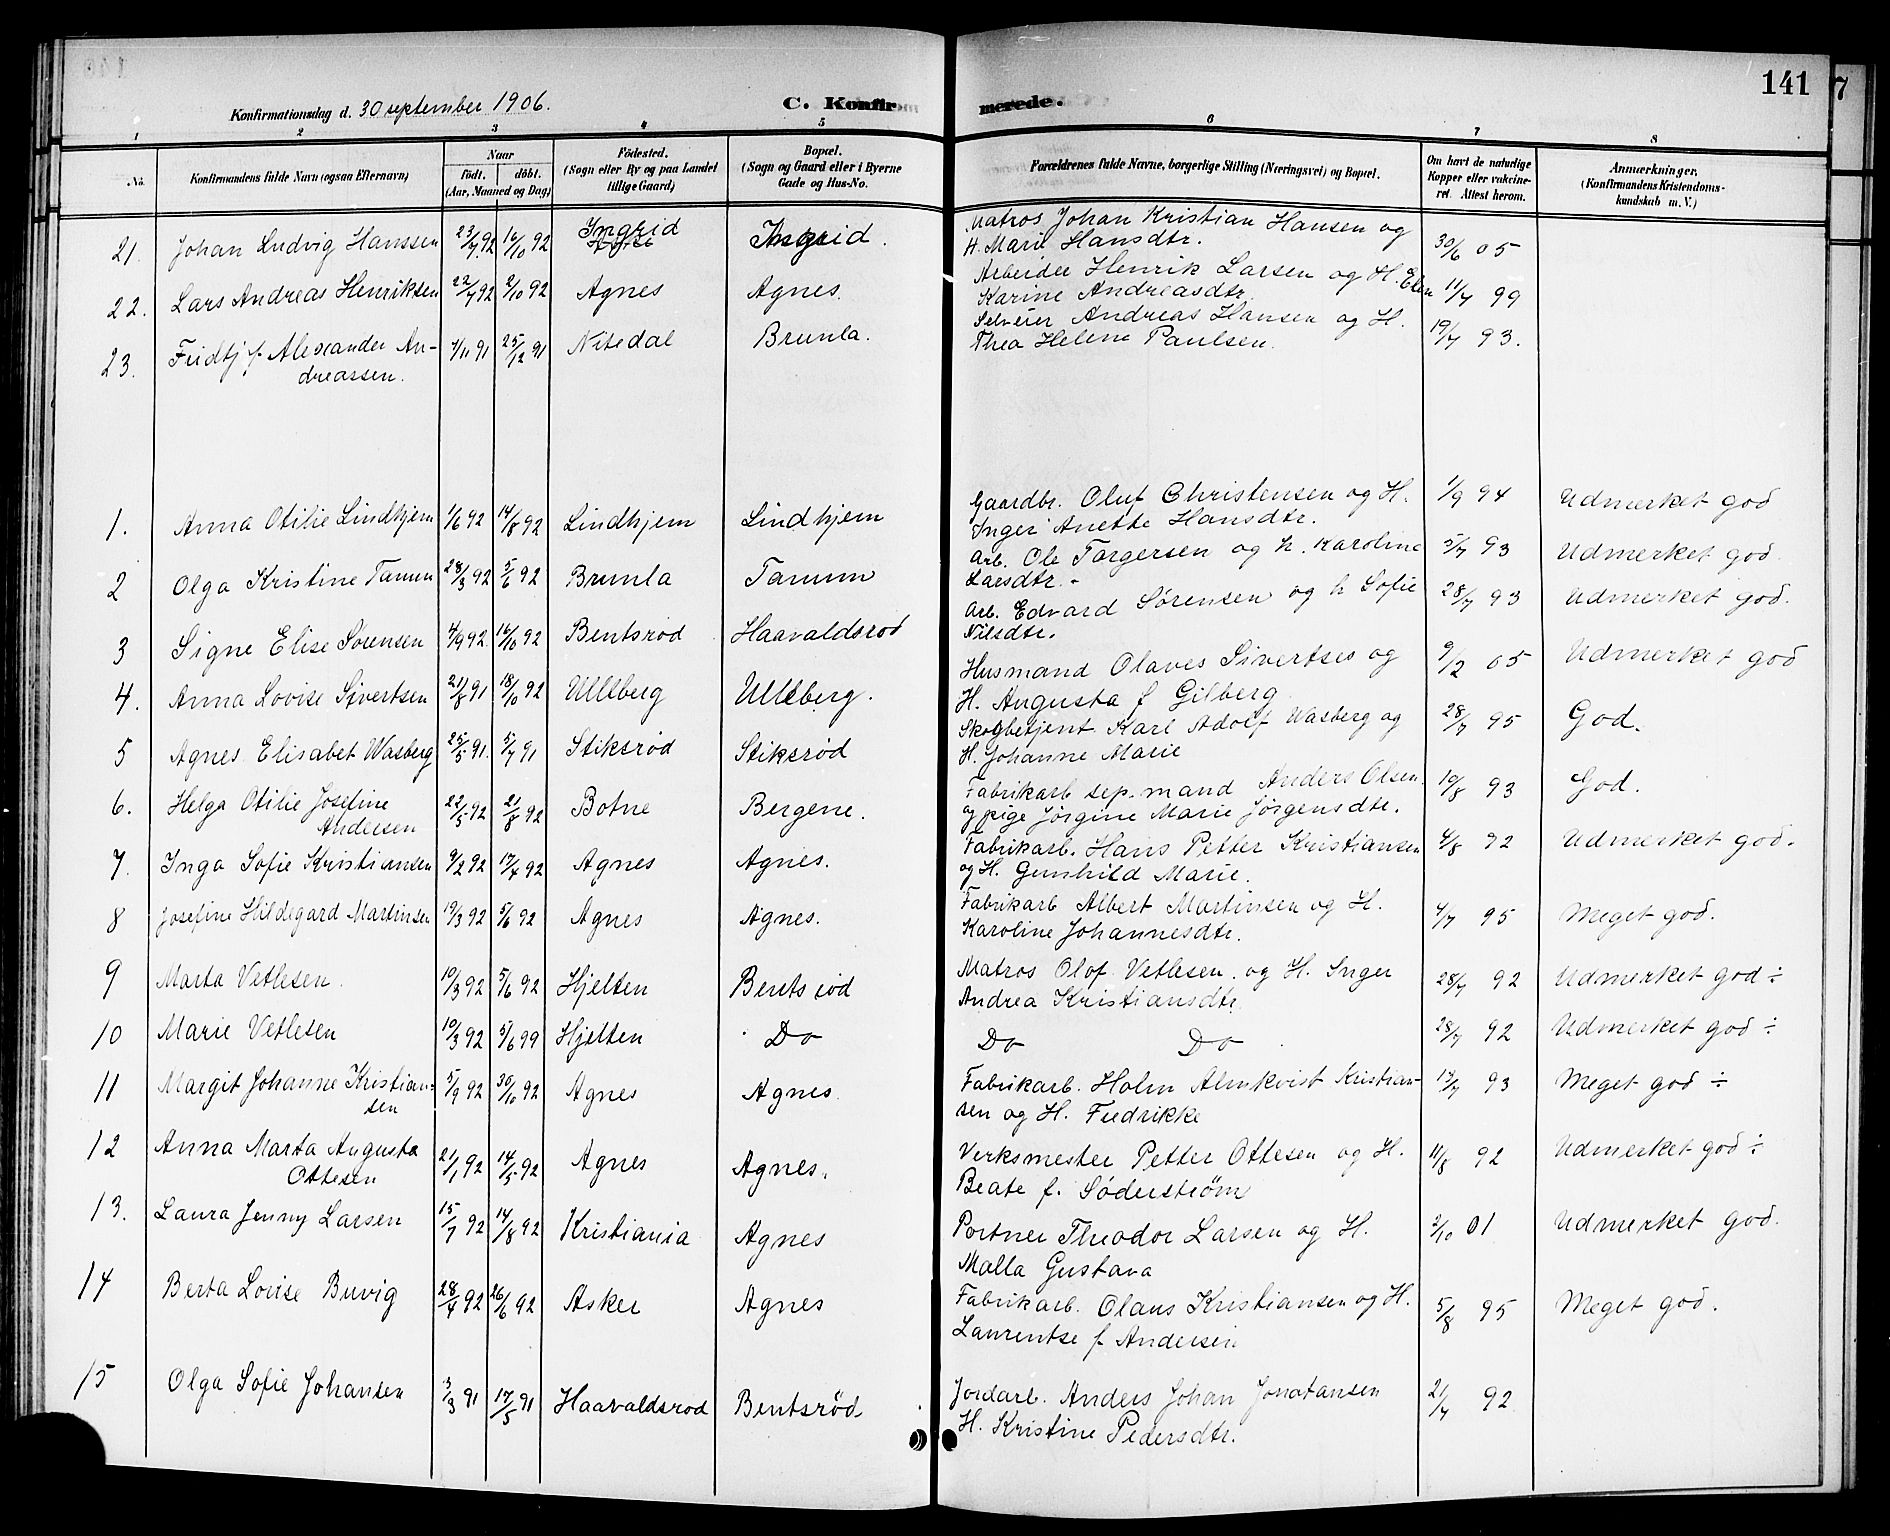 141
7
Konfirmationsdag d. 30 september 1906.
C. Konfirmerede.
1 2 3 4 5 6 7 8
No.
Konfirmandens fulde Navn (ogsaa Efternavn)
Naar
födt. döbt.
(Aar, Maaned og Dag)
Födested.
(Sogn eller By og paa Landet
tillige Gaard)
Bopæl.
(Sogn og Gaard eller i Byerne
Gade og Hus-No.
Forældrenes fulde Navne, borgerlige Stilling (Næringsvei) og Bopæl.
Om havt de naturlige
Kopper eller vakcine-
ret. Attest herom.
Anmærkninger.
(Konfirmandens Kristendoms-
kundskab m. V.)
21. Johan Ludvig Hanssen 23/7 92 16/10 92 Ingrid Ingrid. Matros Johan Kristian Hansen og
H. Marie Hansdtr. 30/6 05
22. Lars Andreas Henriksen 22/7 92 2/10 92 Agnes Agnes. Arbeider Henrik Larsen og H. Elen
Karine Andreasdtr. 11/7 99
23. Fridtjof Alexander An-
dreassen. 7/11 91 25/12 91 Nitedal Brunla. Selveier Andreas Hansen og H.
Thea Helene Paulsen. 19/7 93.
1. Anna Otilie Lindhjem 1/6 92 14/8 92 Lindhjem Lindhjem Gaardbr. Oluf Christensen og H. 1/9 94 Udmerket god
Inger Anette Hansdtr.
2 Olga Kristine Tanum 28/3 92 5/6 92 Brunla Tanum Arb. Ole Torgersen og h. Karoline 5/7 93 Udmerket god.
Larsdtr.
3 Signe Elise Sørensen 4/9 92 16/10 92 Bentsrød Haavaldsrød Arb. Edvard Sørensen og h Sofie 28/7 93 Udmerket god.
Nilsdtr.
4. Anna Lovise Sivertsen 21/8 91 18/10 92 Ullsberg Ullsberg. Husmand Olaves Sivertses og 9/2 05 Udmerket god
H. Augusta f Gilberg
5 Agnes Elisabet Wasberg 25/5 91. 5/7 91 Stiksrød Stiksrød Skogbetjent Karl Adolf Wasberg og 28/7 95 God.
H. Johanne Marie
6. Helga Otilie Josefine
Andersen 22/5 92 21/8 92 Botne Bergene. Fabrikarb sep. mand Anders Olsen 19/8 93 God.
og pige Jørgine Marie Jørgensdtr.
7. Inga Sofie Kristiansen 9/2 92 17/4 92 Agnes Agnes. Fabrikarb. Hans Petter Kristiansen 4/8 92 Udmerket god.
og H. Gunhild Marie.
8 Josefine Hildegard Martinsen 19/3 92 5/6 92 Agnes Agnes. Fabrikarb Albert Martinsen og H. 4/7 95 Meget god.
Karoline Johannesdtr.
9 Marta Vetlesen 10/3 92 5/6 92 Hjelten Bentsrød Matros Olof Vetlesen. og H. Inger 28/7 92 Udmerket god ÷
Andrea Kristiansdtr.
10 Marie Vetlesen 10/3 92 5/6 99 Hjelten Do Do Do 28/7 92 Udmerket god ÷
11 Margit Johanne Kristian-
sen 5/9 92 30/10 92 Agnes Agnes Fabrikarb. Holm Almkvist Kristian- 13/7 93 Meget god ÷
sen og H. Fredrikke
12 Anna Marta Augusta
Ottesen 21/1 92 14/5 92 Agnes Agnes. Verksmester Petter Ottesen og H. 11/8 92 Udmerket god ÷
Beate f. Söderstrøm
13. Laura Jenny Larsen 15/7 92 14/8 92 Kristiania Agnes Portner Theodor Larsen og H. 2/10 01 Udmerket god.
Malla Gustava
14 Berta Louise Buvig 28/4 92 26/6 92 Asker Agnes Fabrikarb. Olaus Kristiansen og H. 5/8 95 Meget god.
Laurentse f Andersen
15 Olga Sofie Johansen 3/3 91 17/5 91 Haavaldsrød Bentsrød Jordarb. Anders Johan Jonatansen 21/7 92
H. Kristine Pedersdtr.